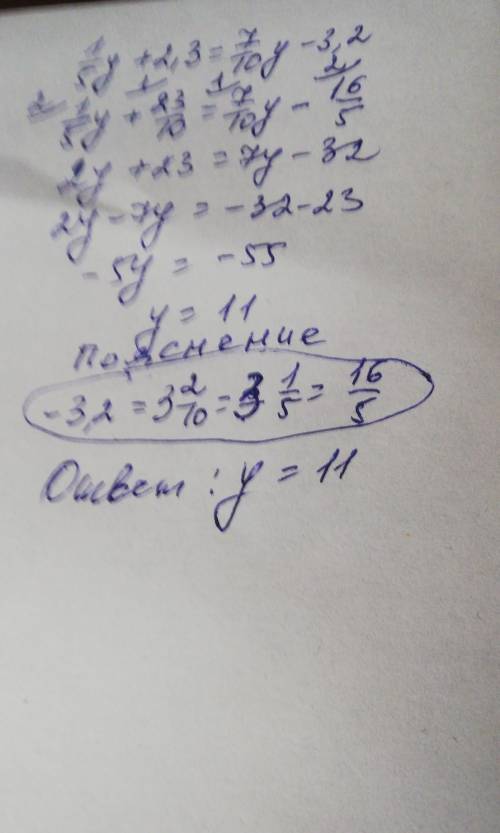 1/5 y + 2,3 = 7/10 y - 3,2
2 1/5 y + 1 23/10 = 1 7/10 y - 2 16/5
2y + 23 = 7y - 32
2y - 7y = -32 - 23
-5y = -55
y = 11
Пояснение
-3,2 = 3 2/10 = 3 1/5 = 16/5
Ответ: y = 11